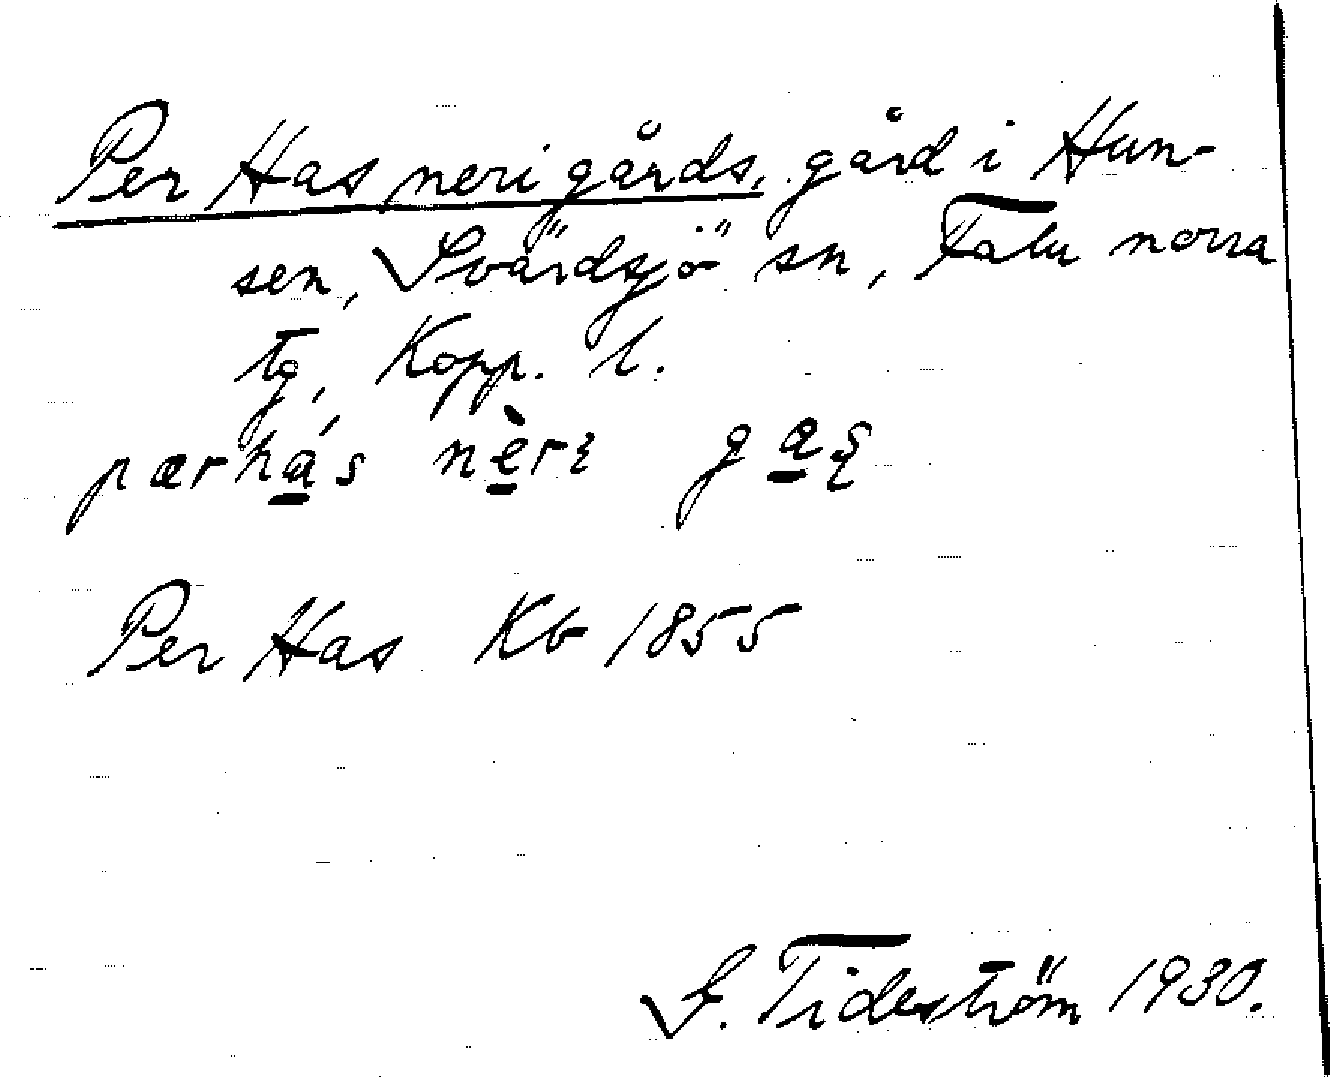 Per Has neri gårds, gård i Hun-
sen, Svärdsjö sn, Falu norra
tg, Kopp. l.
pærhá̱s nè̱rɩ ga̱ʂ
Per Has Kb 1855
G. Tideström 1930.